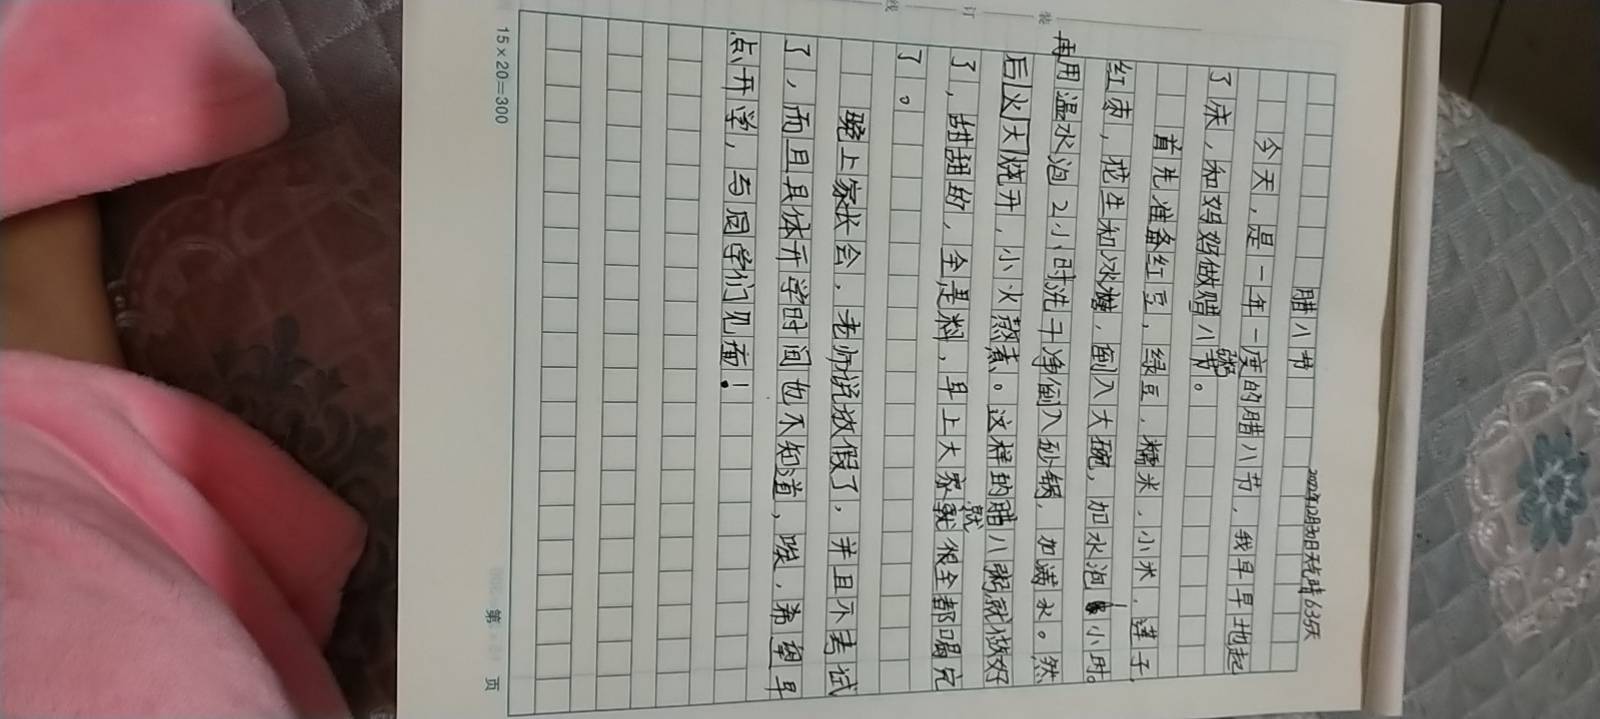 装
订
线
2022年12月30日天气晴635天
腊八节
今天，是一年一度的腊八节，我早早地起
了床，和妈妈做腊八粥。
首先准备红豆，绿豆，糯米，小米，莲子，
红枣，花生和冰糖，倒入大碗，加水泡1小时。
再用温水泡2小时洗干净倒入砂锅，加满水。然
后火大烧开，小火熬煮。这样的腊八粥就做好
了，甜甜的，全是料，早上大家就很全都喝完
了。
晚上家长会，老师说放假了，并且不考试
了，而且具体开学时间也不知道，唉，希望早
点开学，与同学们见面！
15×20=300
第 页